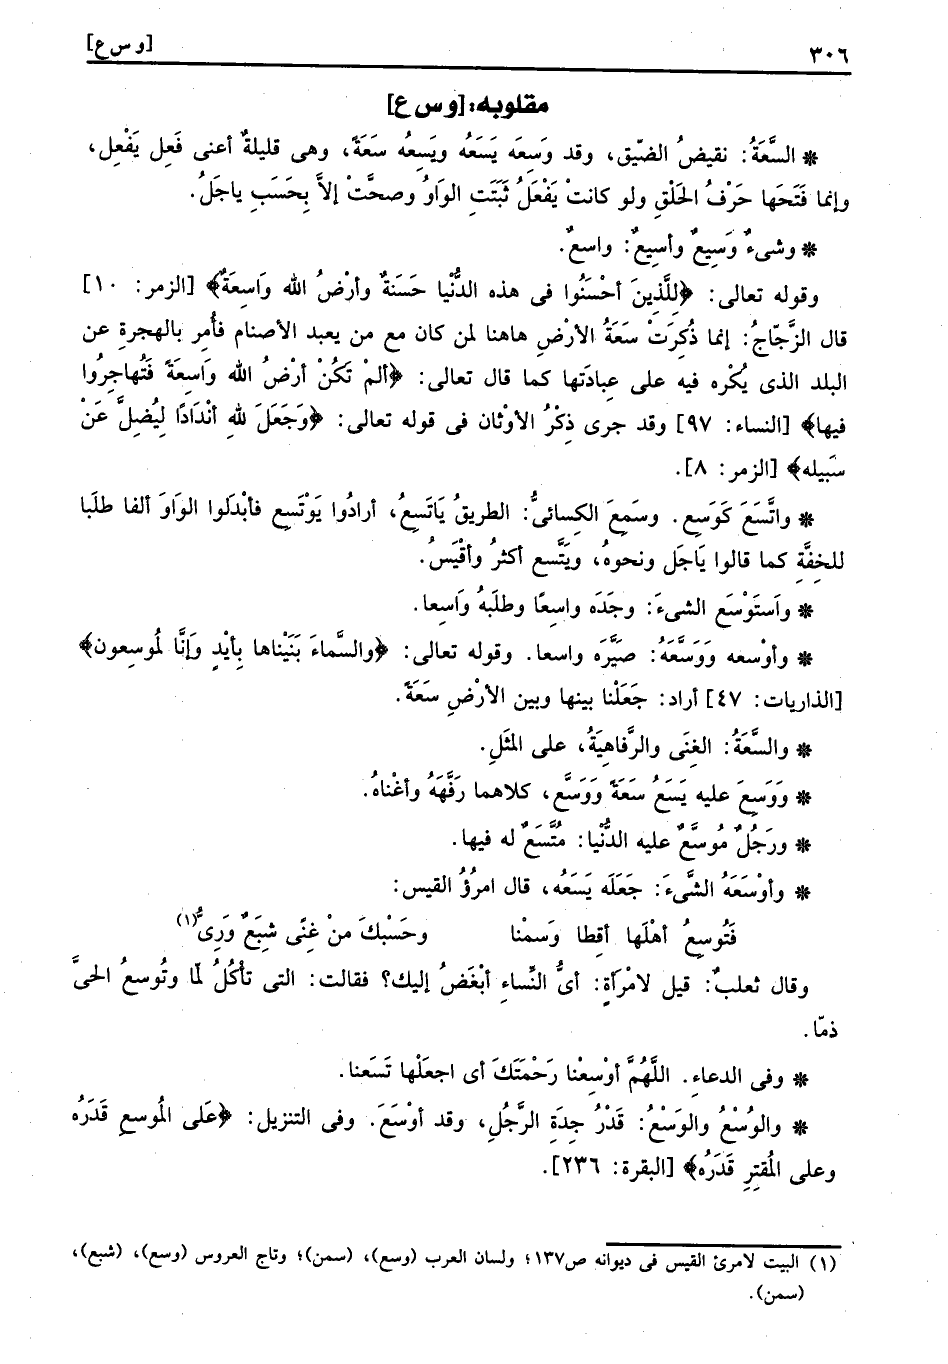 ٣٠٦ [و س ع]
مقلوبه: [و س ع]
* السَّعَةُ: نقيضُ الضيّق، وقد وَسِعَه يَسَعُه ويَسِعُه سَعَةً، وهى قليلةٌ أعنى فَعِل يَفْعِل،
وإنما فَتَحَها حَرْفُ الحَلْقِ ولو كانتْ يَفْعَلُ ثَبَتَتِ الوَاوُ وصحتَّ إلاَّ بِحَسَبِ ياجَلُ.
* وشىءٌ وَسِيعٌ وأسِيعٌ: واسعٌ.
وقوله تعالى: ﴿للَّذِينَ أحْسَنُوا فى هذه الدُّنْيا حَسَنَةٌ وأرْضُ الله وَاسِعَةٌ﴾ [الزمر: ١٠]
قال الزَّجّاجُ: إنما ذُكِرَتْ سَعَةُ الأرْضِ هاهنا لمن كان مع من يعبد الأصنام فأُمِر بالهجرةِ عن
البلد الذى يُكْره فيه على عِبادَتها كما قال تعالى: ﴿ألمْ تَكُنْ أرضُ الله وَاسِعَةً فَتُهاجِرُوا
فيها﴾ [النساء: ٩٧] وقد جرى ذِكْرُ الأوْثان فى قوله تعالى: ﴿وَجَعَلَ للهِ أنْدَادًا لِيُضلَّ عَنْ
سَبيله﴾ [الزمر: ٨].
* واتَّسَعَ كَوَسِع. وسَمِعَ الكِسائىُّ: الطريقُ يَاتَسِعُ، أرادُوا يَوْتَسِع فأبْدَلوا الوَاوَ ألفا طلَبا
للخِفَّةِ كما قالوا يَاجَل ونحوهُ، ويَتَّسع أكثرُ وأقْيَسُ.
* واَستَوْسَع الشىءَ: وجَدَه واسعًا وطلَبهُ وَاسعا.
* وأوْسعه وَوَسَّعَهُ: صيَّرَه واسعا. وقوله تعالى: ﴿والسَّماءَ بَنَيْناها بِأيْدٍ وَإنَّا لمُوسعون﴾
[الذاريات: ٤٧] أراد: جَعَلْنا بينها وبين الأرْضِ سَعَةً.
* والسَّعَةُ: الغِنَى والرَّفاهِيَةُ، على المثَلِ.
* وَوَسِعَ عليه يَسَعُ سَعَةً وَوَسَّع، كلاهما رَفَّهَهُ وأغْناهُ.
* ورَجُلٌ مُوسَّعٌ عليه الدُّنْيا: مُتَّسَعٌ له فيها.
* وأوْسَعَهُ الشَّىءَ: جَعَلَه يَسَعُه، قال امرُؤُ القيس:
فَتُوسِعُ أهْلَها أقِطا وَسمْنا وحَسْبكَ منْ غِنًى شِبَعٌ وَرِىُّ(١)
وقال ثعلبٌ: قيل لامْرأةٍ: أىُّ النِّساءِ أبْغَضُ إليك؟ فقالت: التى تأكُلُ لمّا وتُوسعُ الحىَّ
ذمّا.
* وفى الدعاءِ. اللَّهُمَّ أوْسِعْنا رَحْمَتَكَ أى اجعَلْها تَسَعنا.
* والوُسْعُ والوَسْعُ: قَدْرُ جِدَةِ الرَّجُلِ، وقد أوْسَعَ. وفى التنزيل: ﴿عَلى المُوسعِ قَدَرُه
وعلى المُقتِرِ قَدَرُه﴾ [البقرة: ٢٣٦].
(١) البيت لامرئ القيس فى ديوانه ص١٣٧؛ ولسان العرب (وسع)، (سمن)؛ وتاج العروس (وسع)، (شبع)،
(سمن).